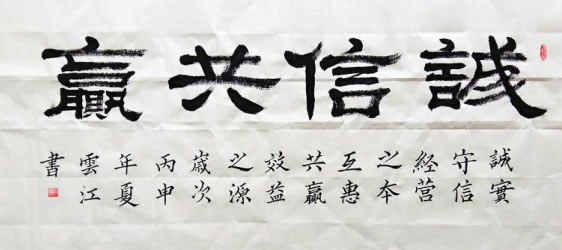 誠信共贏
誠實
守信
經营
之本
互惠
共贏
效益
之源
嵗次
丙申
年夏
雲江
書